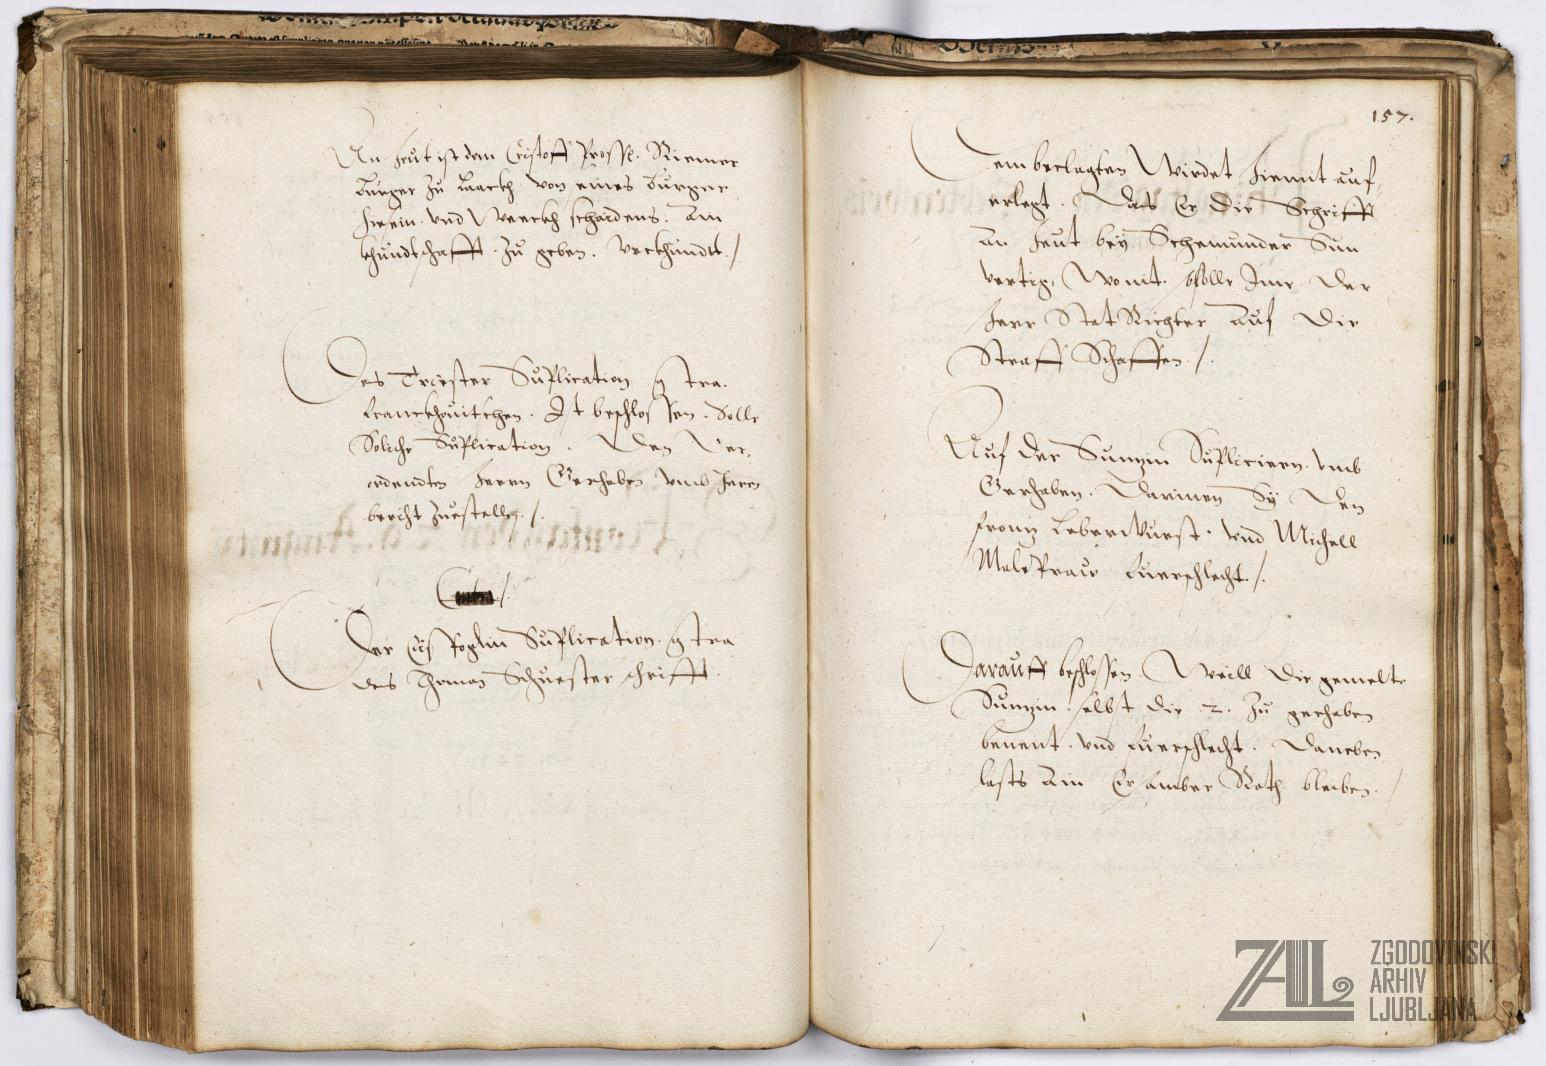 An heut ist dem Cristoff Prossl. Riemer
burger zu Laackh von eines burger
herein vnd Weeckh schaidens. Ain
khundtschafft. zu geben. verkhundt./
Des Triester Suplication contra.
Franckhouitschen. Ist beschlossen. Solle
Soliche Suplication. Den Ver,
ordendten Herrn Gerhaben vmb Iren
bericht zuestellen./.
Der Suplication. contra
des Thoman Schuester schrifft.
157.
Dem beclagten Wirdet hiemit auf,
erlegt. Das Er die Schrifft
an heut bey Scheinunder Sun
vertig, Wo nit. solle Ime Der
Herr StatRichter Auf Die
Straff Schaffen./.
Auf der Sunzin Supliciern. vmb
Gerhaben. Darinen Sy Den
Leberwurst. vnd Michell
fuerschlecht./.
Darauff beschlossen. Weill Die gemelte
Sunzin. selbst die 2. zu gerhaben
benent. vnd fuerschlecht. Daneben
lasts Ain Ersamber Rath bleiben./
ZAL
ZGODOVINSKI
ARHIV
LJUBLJANA